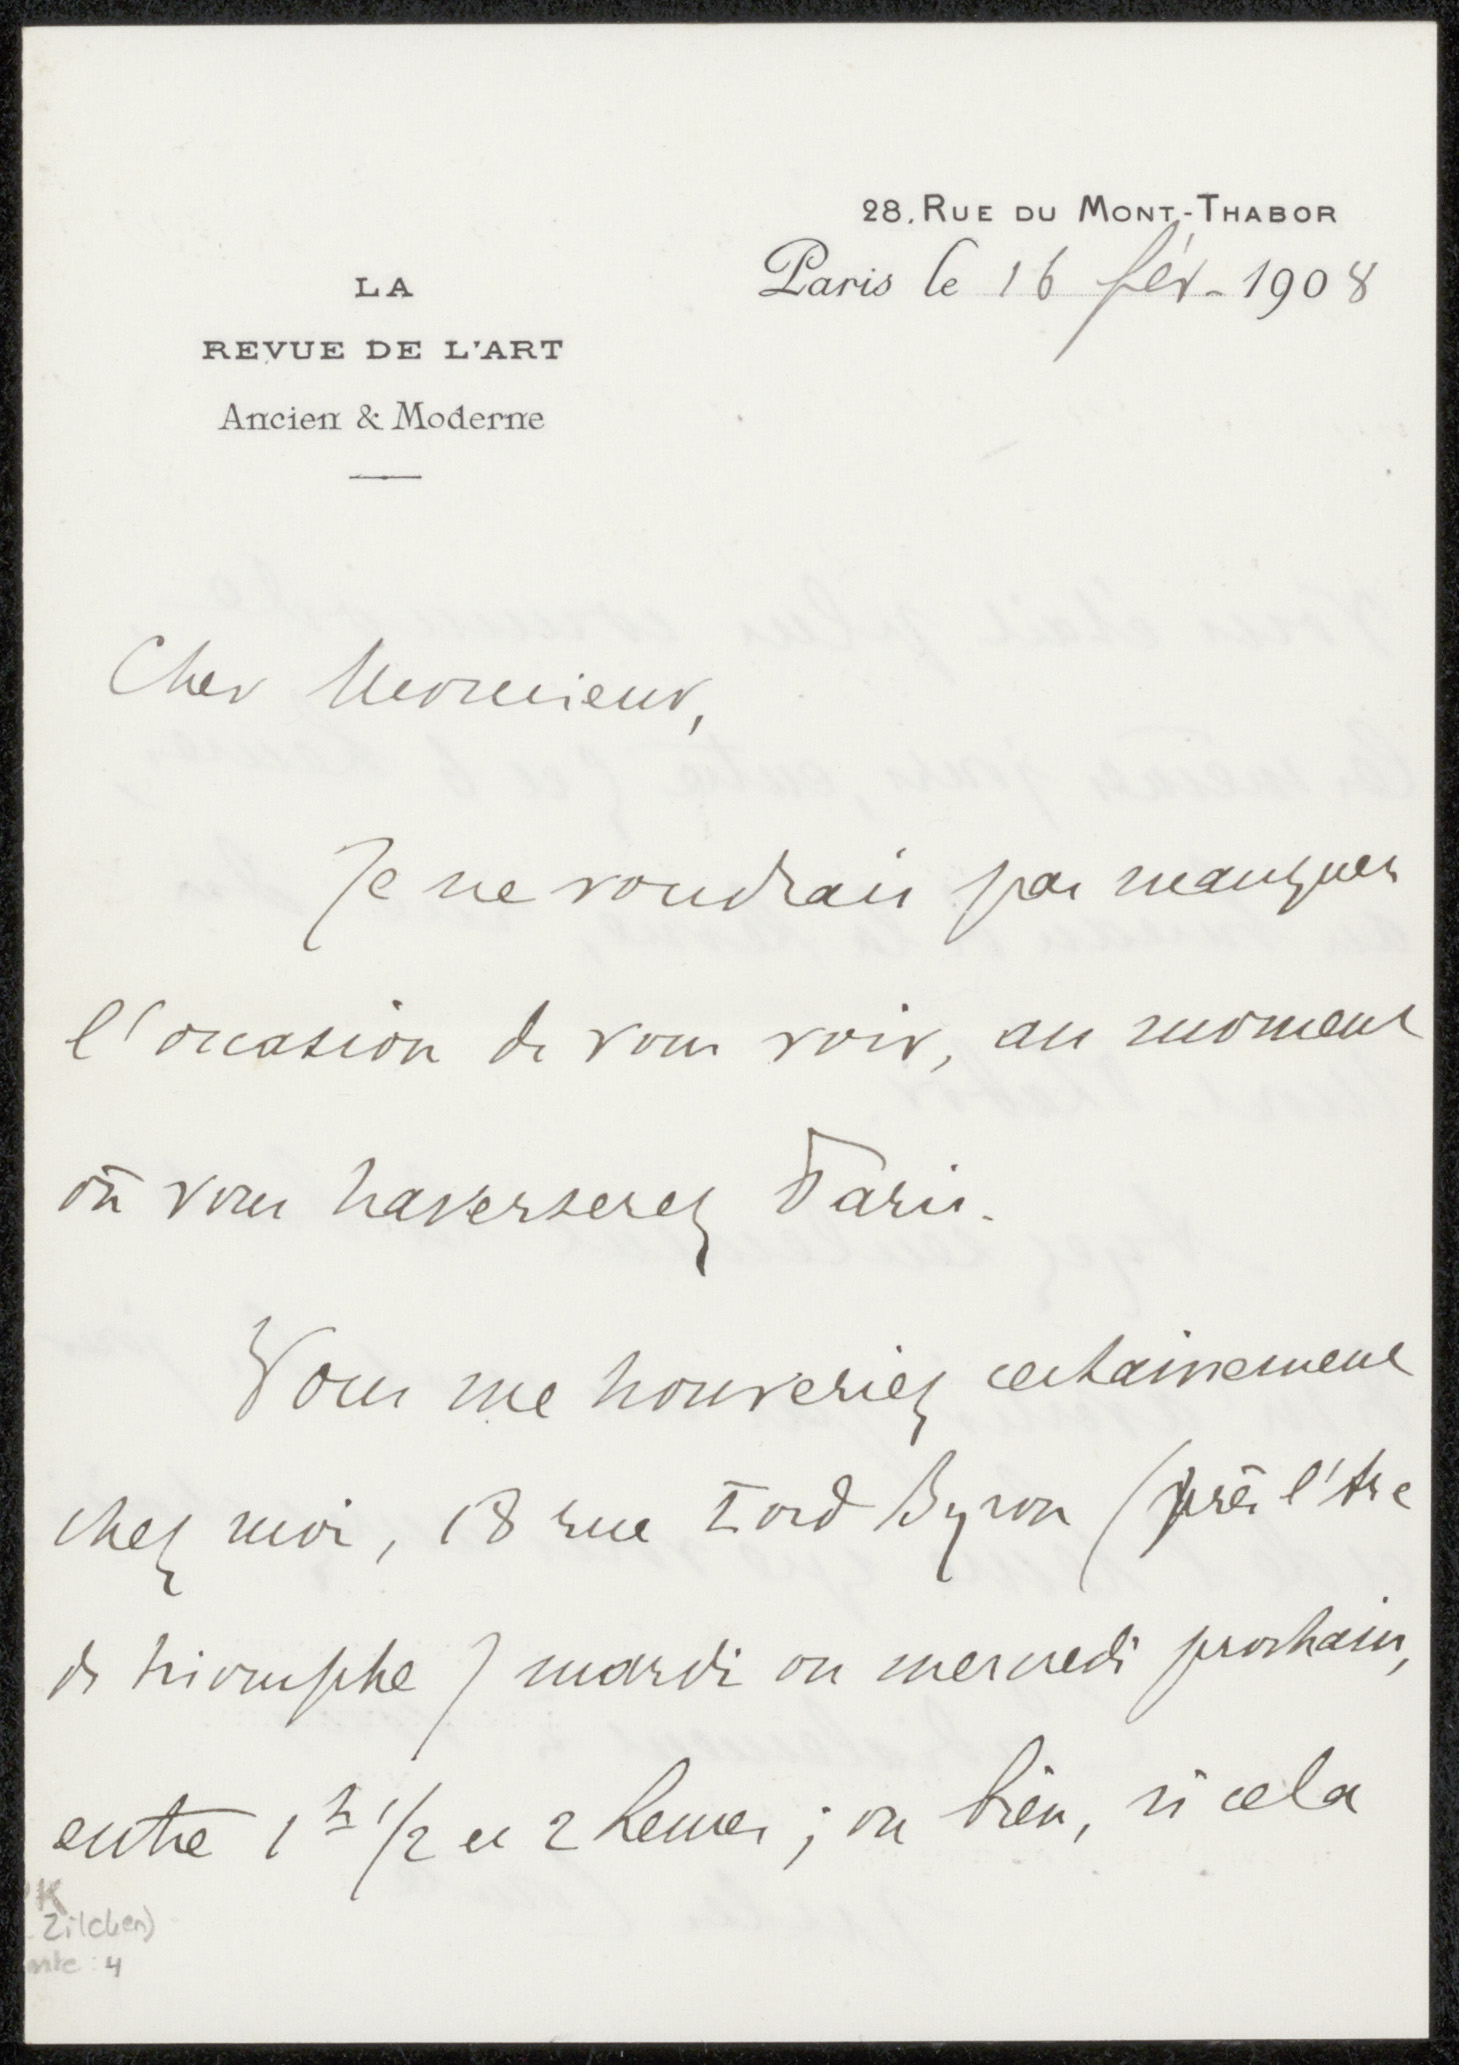 28. RUE DU MONT-THABOR
Paris le 16 fév. 1908
LA
REVUE DE L'ART
Ancien & Moderne
Cher Monsieur,
Je ne voudrais pas manquer
l'occasion de vous voir, au moment
où vous traverserez Paris.
Vous me trouveriez certainement
chez moi, 18 rue Lord Byron (près l'Arc
de triomphe) mardi ou mercredi prochain,
entre 1 h 1/2 et 2 heures ; ou bien, si cela
K
Zilcken)
4